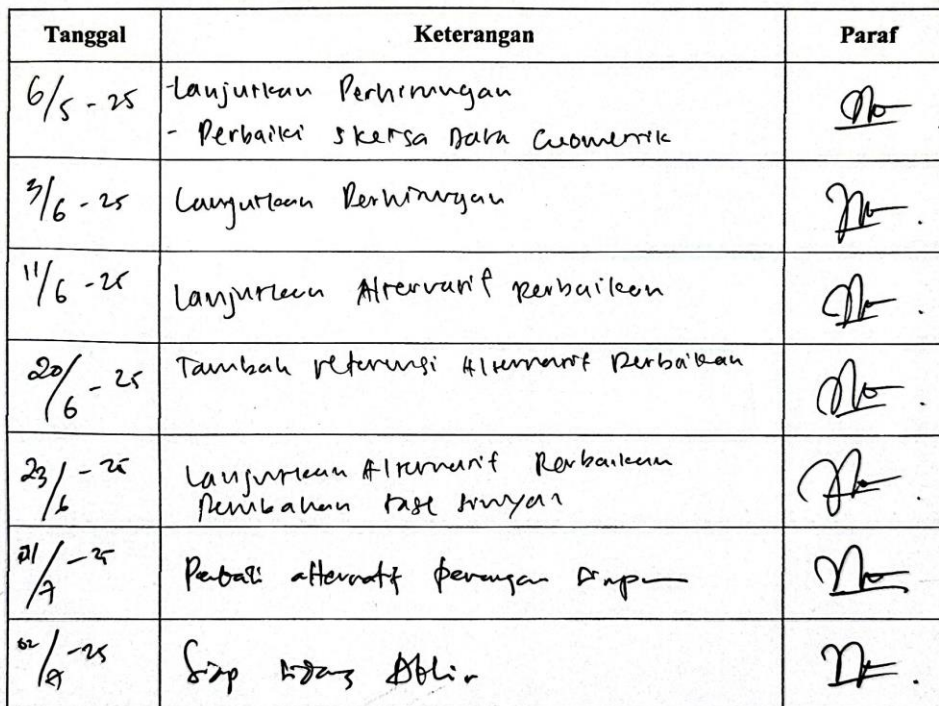 Tanggal Keterangan Paraf
6/5 - 25 - Lanjutkan Perhitungan
- Perbaiki Sketsa Data Geometrik
3/6 - 25 Lanjutkan Perhitungan
11/6 - 25 Lanjutkan Alternatif Perbaikan
20/6 - 25 Tambah referensi Alternatif Perbaikan
23/6 - 25 Lanjutkan Alternatif Perbaikan
fase sinyal
/7 - 25 alternatif
- 25 Siap Sidang Akhir